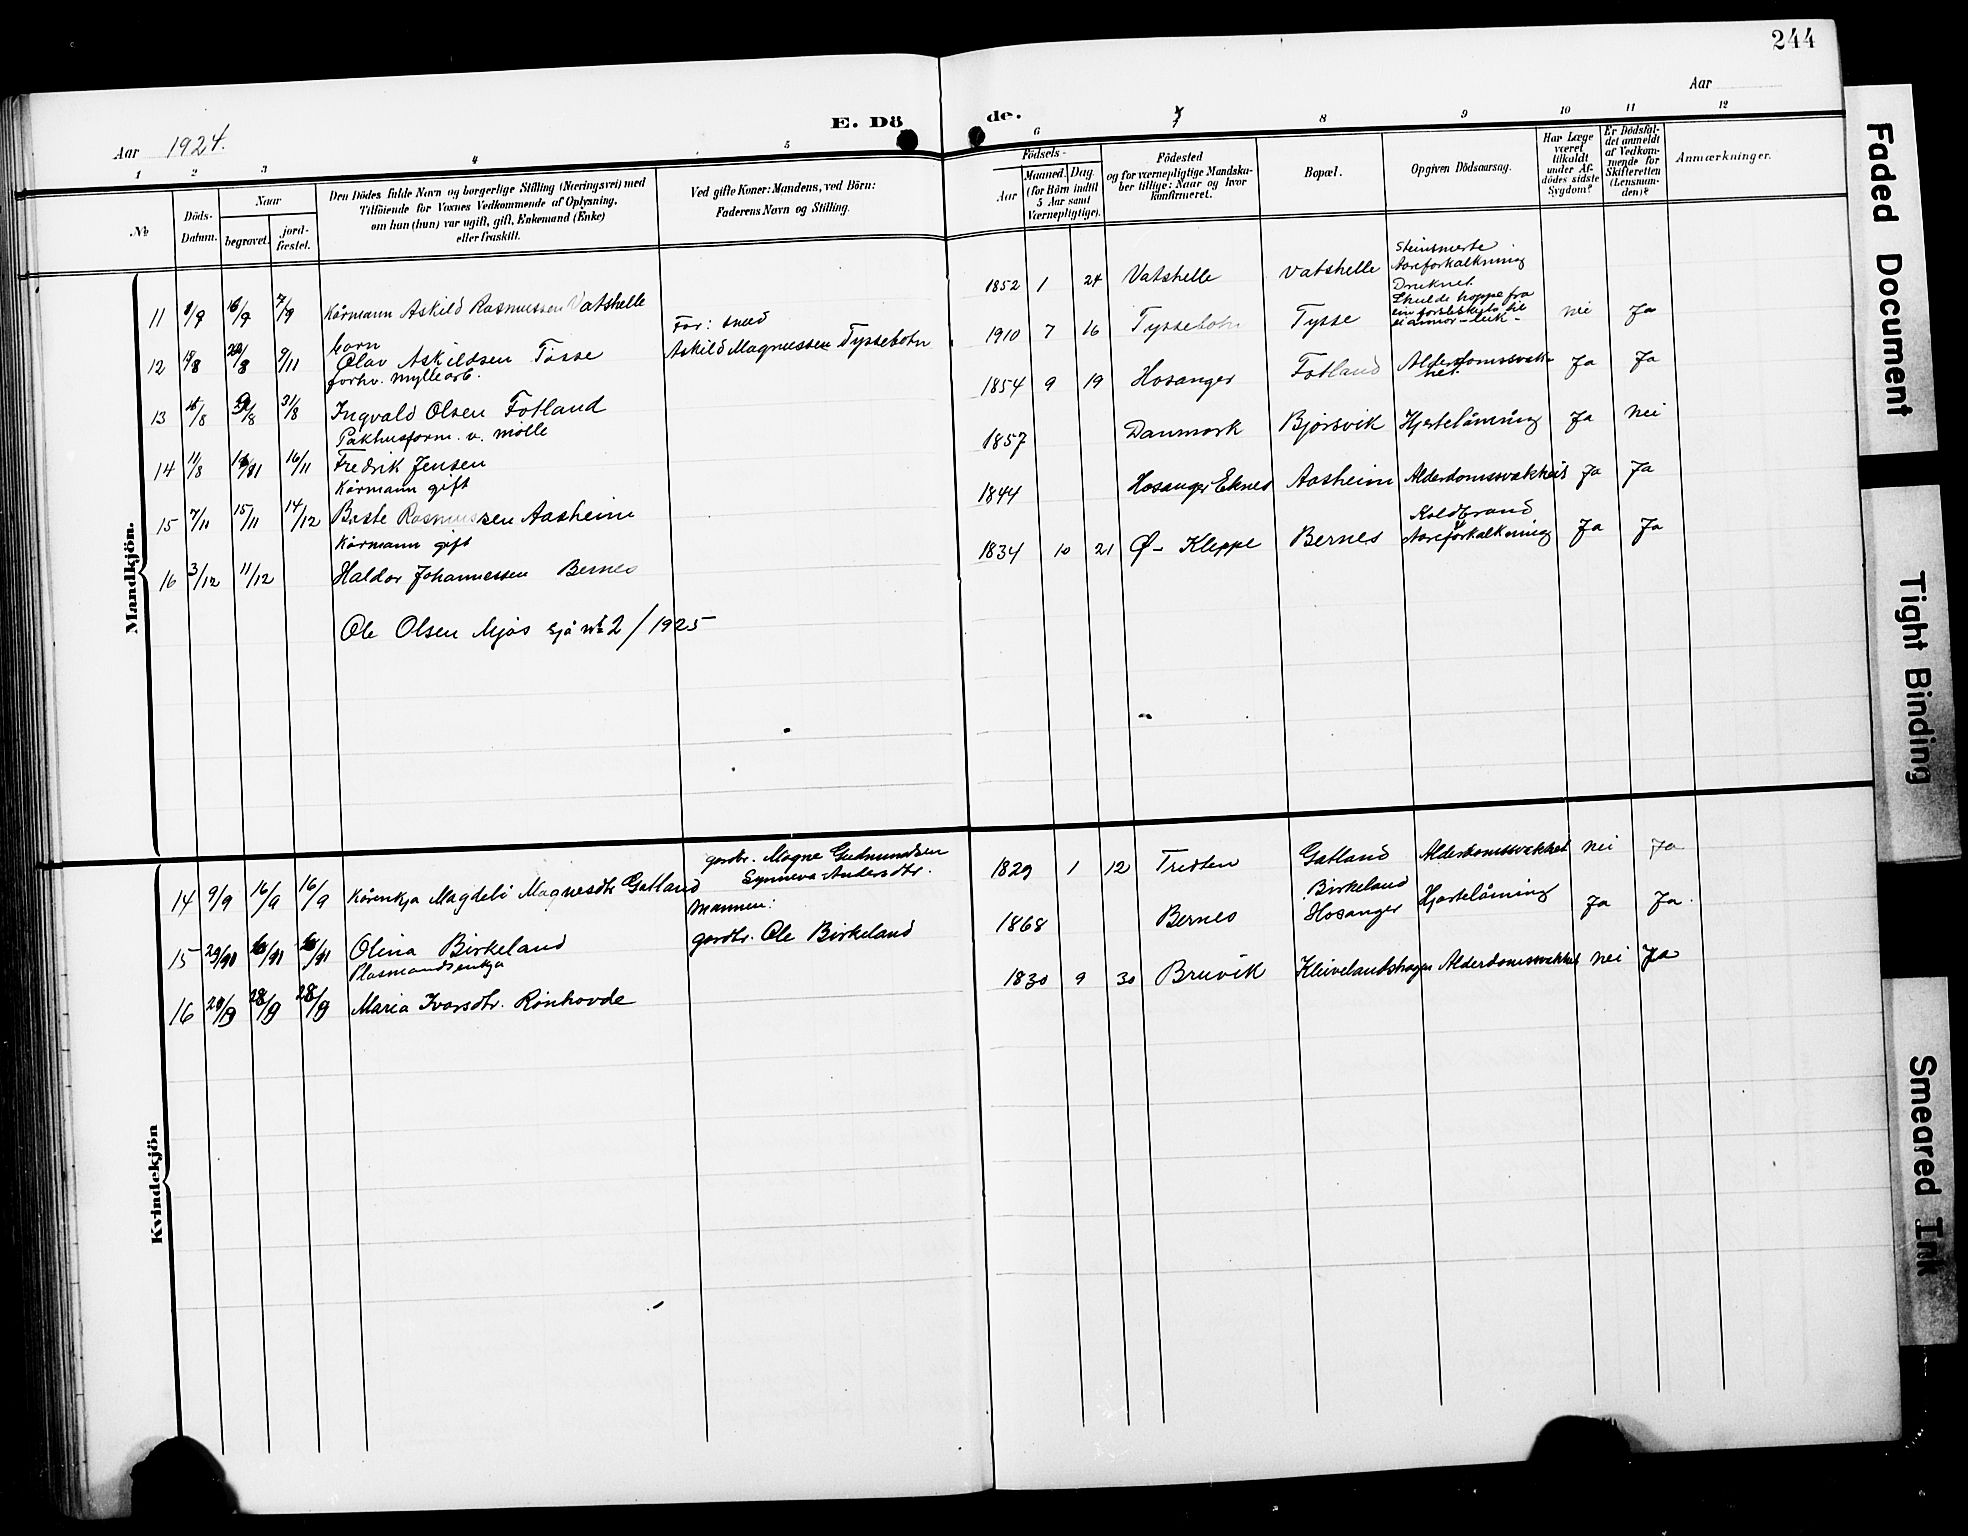 244
Aar 1924.
E. Dö de.
Aar
1 2 3 4 5 6 7 8 9 10 11 12
№
Döds-Datum.
Naar
begravet.
jord-fæstet.
Den Dödes fulde Navn og borgerlige Stilling (Næringsvei) med
Tilföiende for Voxnes Vedkommende af Oplysning,
om han (hun) var ugift, gift, Enkemand (Enke)
eller fraskilt.
Ved gifte Koner: Mandens, ved Börn:
Faderens Navn og Stilling.
Födsels-
Aar
Maaned. Dag.
(for Börn indtil
5 Aar samt
Værnepligtige).
Födested
og for værnepligtige Mandska-
ber tillige: Naar og hvor
konfirmeret.
Bopæl.
Opgiven Dödsaarsag.
Har Læge
været
tilkaldt
under Af-
dödes sidste
Sygdom?
Er Dödsfal-
det anmeldt
af Vedkom-
mende for
Skifteretten
(Lensman-
den)?
Anmærkninger.
Mandkjön.
11 9/9 7/9 Kårmann Askild Rasmussen Vatshelle 1852 1 24 Vatshelle Vatshelle Steinsmerte Aareforkalkning
12 18/8 9/11 born Olav Askildsen Tösse Far: smed Askild Magnussen Tyssebotn 1910 7 16 Tyssebotn Tysse Druknet. Skulde hoppe fra nei Ja
13 31/8 forhv. myllearb. Ingvald Olsen Fotland 1854 9 19 Hosanger Fotland Alderdomssvakhet Ja Ja
14 11/8 16/11 Pakhusform. v. mölle Fredrik Jensen 1857 Danmark Bjørsvik Hjertelåmning Ja nei
15 7/11 15/11 14/12 Kårmann gift Brste Rasmussen Aasheim 1844 Hosanger Eknes Aasheim Alderdomssvakheit Ja Ja
16 3/12 11/12 Kårmann gift Haldor Johannessen Bernes 1834 10 21 Ø- Kleppe Bernes Koldbrand Aareforkalkning Ja Ja
Ole Olsen Mjøs sjå № 2/1925
Kvindekjön
14 9/9 16/9 16/9 Kårenkja Magdeli Magnesdtr Gatland gardbr. Magne Gudmundsen Synneva Andersdtr. 1829 1 12 Tredten Gatland Alderdomssvakhet nei Ja
15 29/11 Olina Birkeland Mannen: gardbr. Ole Birkeland 1868 Bernes Birkeland Hosanger Hjartelåmning Ja Ja.
16 28/9 28/9 Plasmandsenkja Maria Ivarsdtr. Rønhovde 1830 9 30 Bruvik Kleivelandshagen Alderdomssvakhet nei Ja
Faded Document
Tight Binding
Smeared Ink